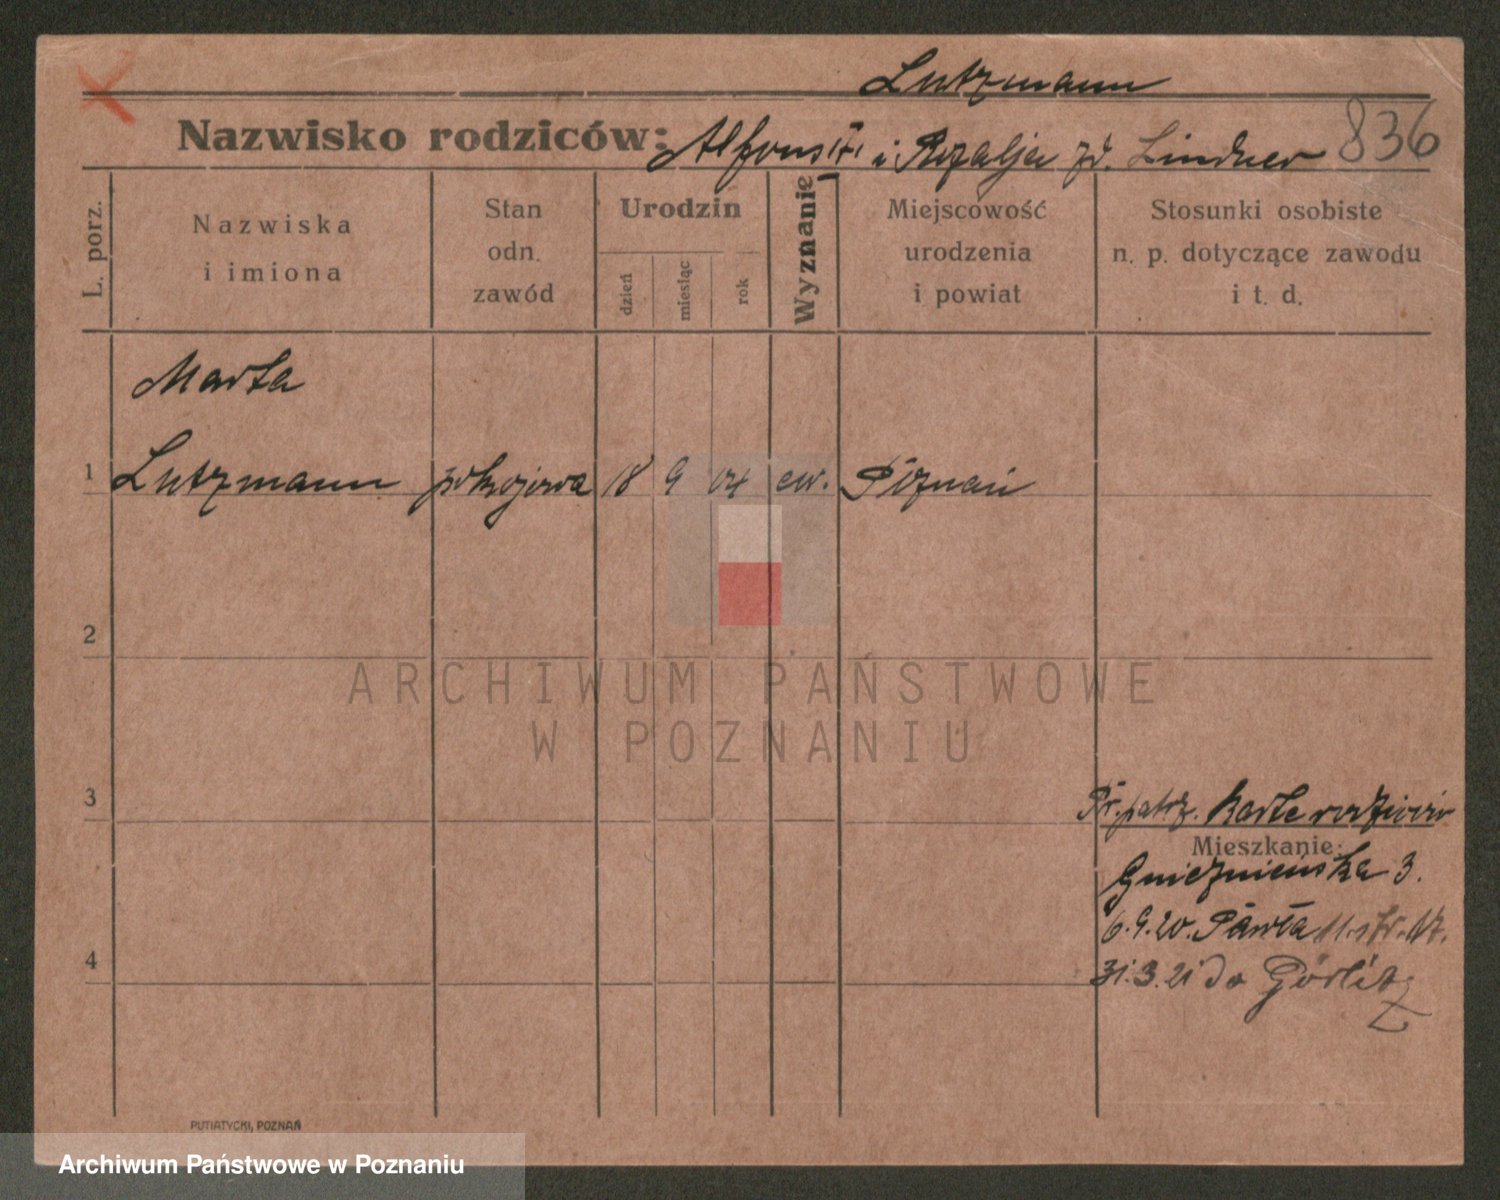 Lutzmann
Nazwisko rodziców: Alfons (†) i Rozalja zd. Lindner 836
L. porz.
Nazwiska i imiona
Stan odn. zawód
Urodzin
dzień
miesiąc
rok
Wyznanie
Miejscowość urodzenia i powiat
Stosunki osobiste n. p. dotyczące zawodu i t. d.
Marta
1 Lutzmann pokojowa 18 9 04 ew. Poznań
2
ARCHIWUM PAŃSTWOWE
W POZNANIU
3
patrz. Karte rodziców
Mieszkanie:
Gnieznieńska 3.
6.9.20. Pawła 11.
4
31.3.21 do Görlitz
PUTIATYCKI, POZNAŃ
Archiwum Państwowe w Poznaniu